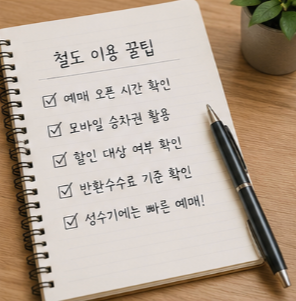 철도 이용 꿀팁
예매 오픈 시간 확인
모바일 승차권 활용
할인 대상 여부 확인
반환수수료 기준 확인
성수기에는 빠른 예매!